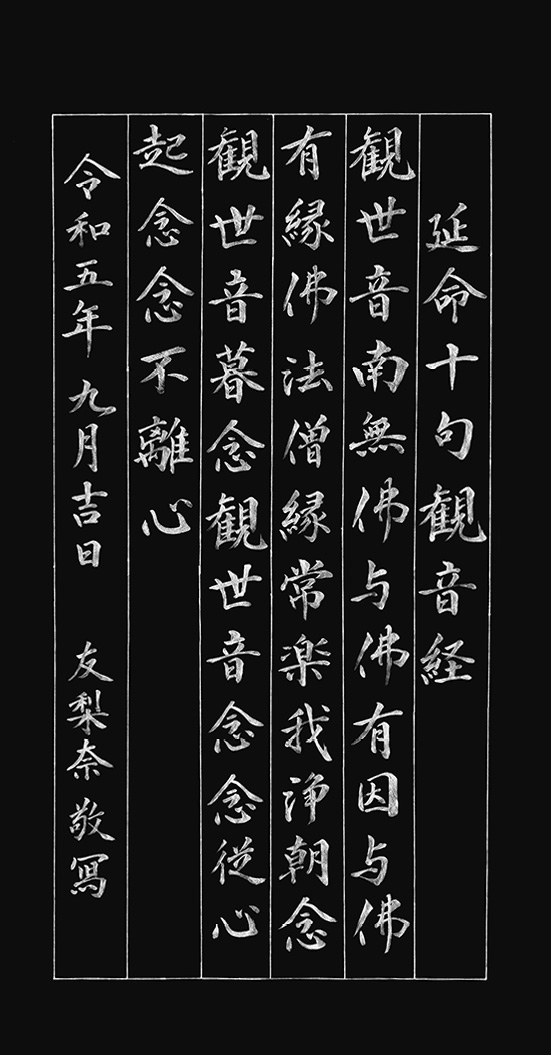 延命十句観音経
観世音南無佛与佛有因与佛
有縁佛法僧縁常楽我浄朝念
観世音暮念観世音念念従心
起念念不離心
令和五年九月吉日 友梨奈敬写